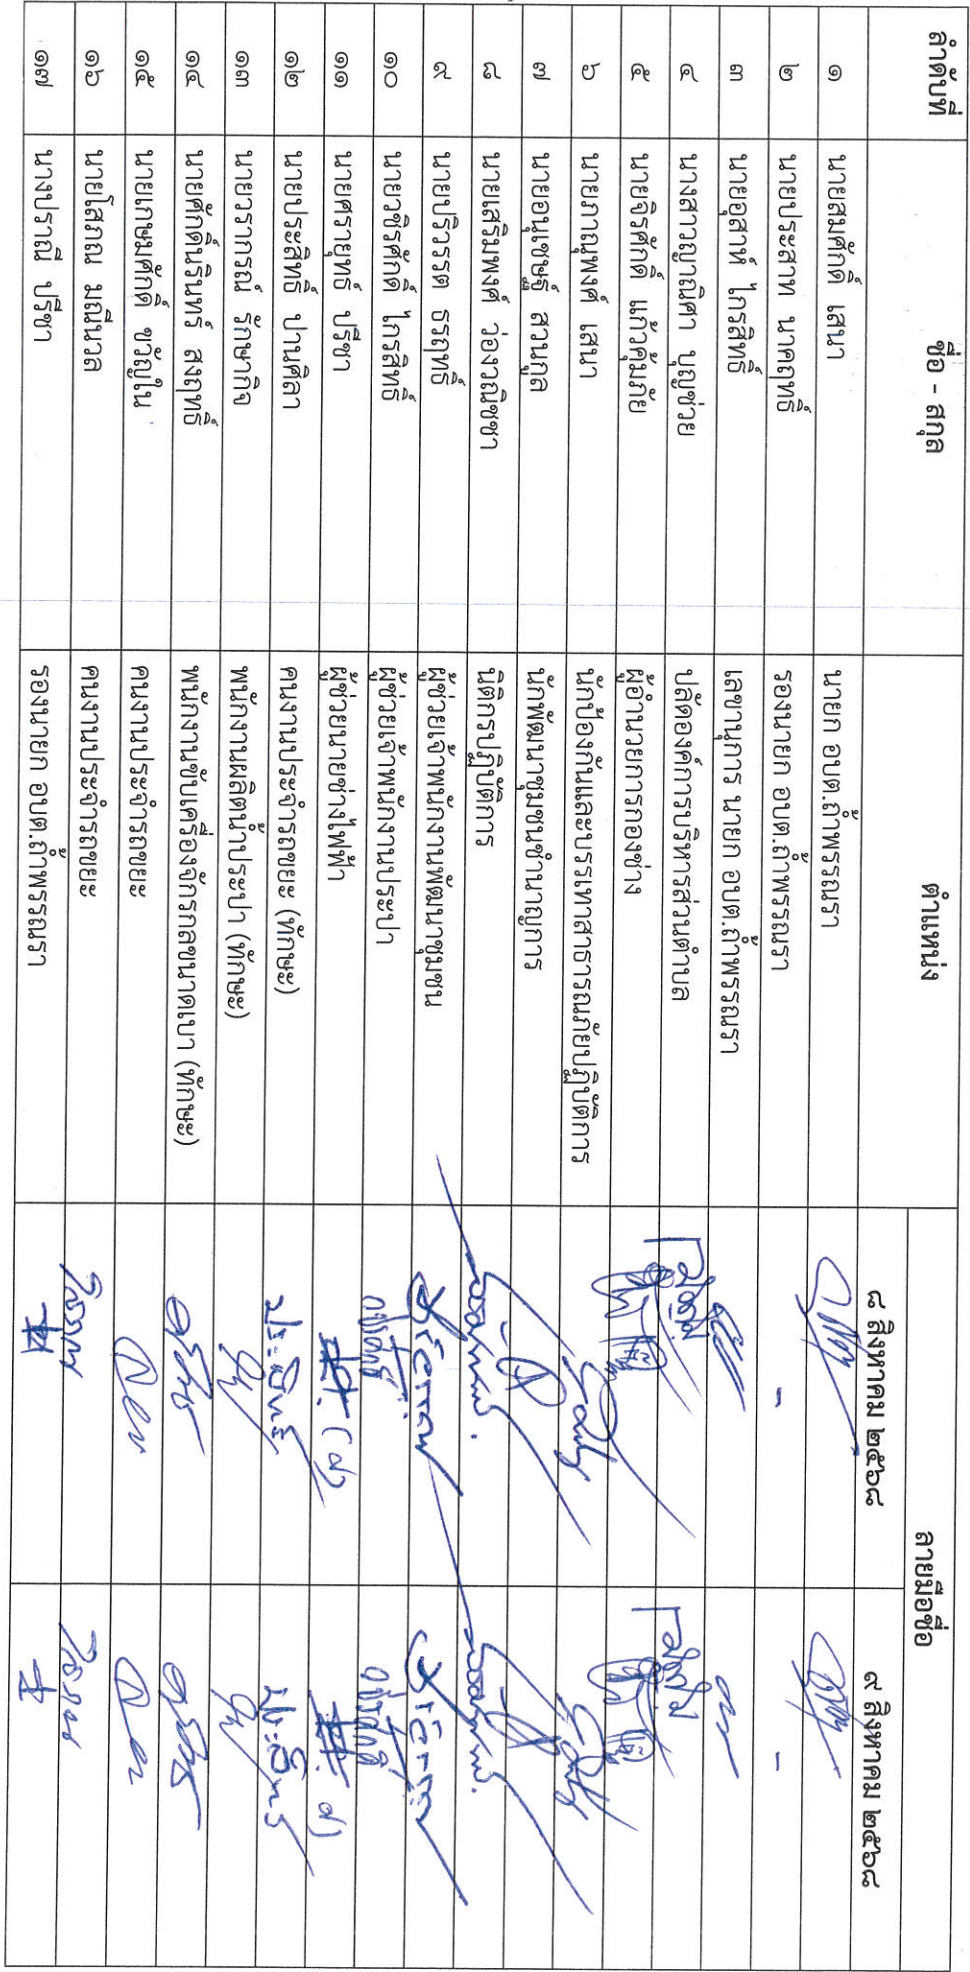 ลำดับที่ ชื่อ - สกุล ตำแหน่ง ลายมือชื่อ
๘ สิงหาคม ๒๕๖๘ ๙ สิงหาคม ๒๕๖๘
๑ นายสมศักดิ์ เสนา นายก อบต.ถ้ำพรรณรา
๒ นายประสาท นาคฤทธิ์ รองนายก อบต.ถ้ำพรรณรา - -
๓ นายอุสาห์ ไกรสิทธิ์ เลขานุการ นายก อบต.ถ้ำพรรณรา
๔ นางสาวญาณิศา บุญช่วย ปลัดองค์การบริหารส่วนตำบล
๕ นายจิรศักดิ์ แก้วคุ้มภัย ผู้อำนวยการกองช่าง
๖ นายภาณุพงศ์ เสนา นักป้องกันและบรรเทาสาธารณภัยปฏิบัติการ
๗ นายอนุเชษฐ์ สวนกูล นักพัฒนาชุมชนชำนาญการ
๘ นายเสริมพงศ์ ว่องวาณิชชา นิติกรปฏิบัติการ
๙ นายปริวรรต ธรฤทธิ์ ผู้ช่วยเจ้าพนักงานพัฒนาชุมชน
๑๐ นายวชิรศักดิ์ ไกรสิทธิ์ ผู้ช่วยเจ้าพนักงานประปา
๑๑ นายศรายุทธ์ ปรีชา ผู้ช่วยนายช่างไฟฟ้า
๑๒ นายประสิทธิ์ ปานศิลา คนงานประจำรถขยะ (ทักษะ) ประสิทธิ์ ประสิทธิ์
๑๓ นายวราภรณ์ รักษากิจ พนักงานผลิตน้ำประปา (ทักษะ)
๑๔ นายศักดิ์นรินทร์ สงฤทธิ์ พนักงานขับเครื่องจักรกลขนาดเบา (ทักษะ)
๑๕ นายเกษมศักดิ์ ขวัญใน คนงานประจำรถขยะ
๑๖ นายโสภณ มณีนวล คนงานประจำรถขยะ โสภณ โสภณ
๑๗ นางปราณี ปรีชา รองนายก อบต.ถ้ำพรรณรา